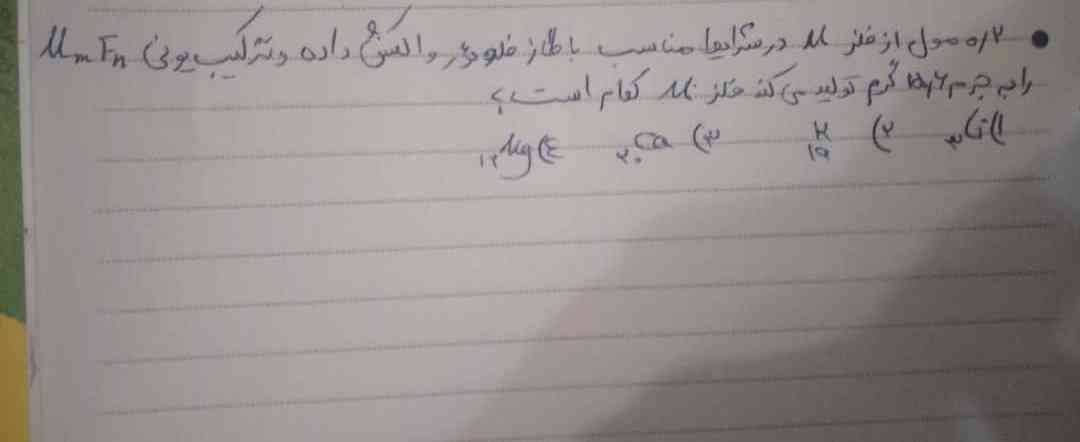 ● ۰/۲ مول از فلز M در شرایط مناسب با گاز فلوئور واکنش داده و ترکیب یونی MmFn
را به جرم ۱۵/۶ گرم تولید می کند فلز M کدام است؟
۱) ۳Li ۲) ۱۹K ۳) ۲۰Ca ۴) ۱۲Mg